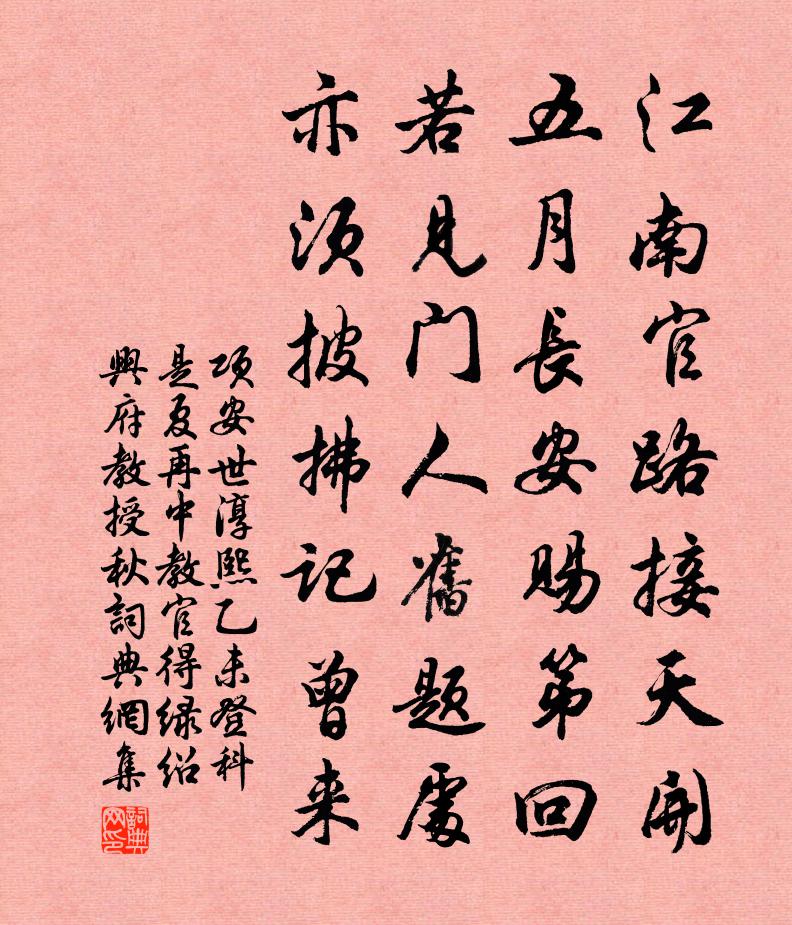 江南官路接天开
五月長安賜第回
若見门人舊题處
亦须披拂记曾来
项安世淳熙乙未登科
是夏再中教官得绿绍
興府教授秋詞典網集
詞典网印